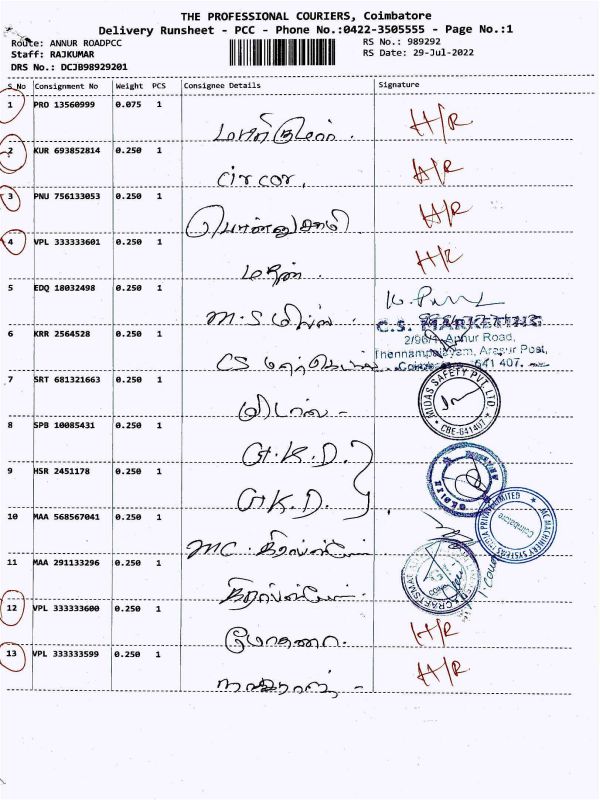 THE PROFESSIONAL COURIERS, Coimbatore
Delivery Runsheet - PCC - Phone No.:0422-3505555 - Page No.:1
Route: ANNUR ROADPCC RS No.: 989292
Staff: RAJKUMAR RS Date: 29-Jul-2022
DRS No.: DCJB98929201
S_No Consignment No Weight PCS Consignee Details Signature
1 PRO 13560999 0.075 1 H/R
2 KUR 693852814 0.250 1 H/R
Circor.
3 PNU 756133053 0.250 1 H/R
பொன்னுசாமி
4 VPL 333333601 0.250 1 H/R
5 EDQ 18032498 0.250 1
M.S மில்ஸ்.
C.S. MARKETING
6 KRR 2564528 0.250 1 2/90/1, Annur Road,
Thennampalayam, Arasur Post,
CS மார்க்கெட்டிங் Coimbatore 641 407.
7 SRT 681321663 0.250 1 MIDAS SAFETY PVT. LTD. CBE-641407
மிடாஸ் -
8 SPB 10085431 0.250 1
G.K.D.
9 HSR 2451178 0.250 1
G.K.D.
10 MAA 568567041 0.250 1 MC MACHINERY SYSTEMS INDIA PRIVATE LIMITED Coimbatore
MC.
11 MAA 291133296 0.250 1
12 VPL 333333600 0.250 1 H/R
13 VPL 333333599 0.250 1 H/R